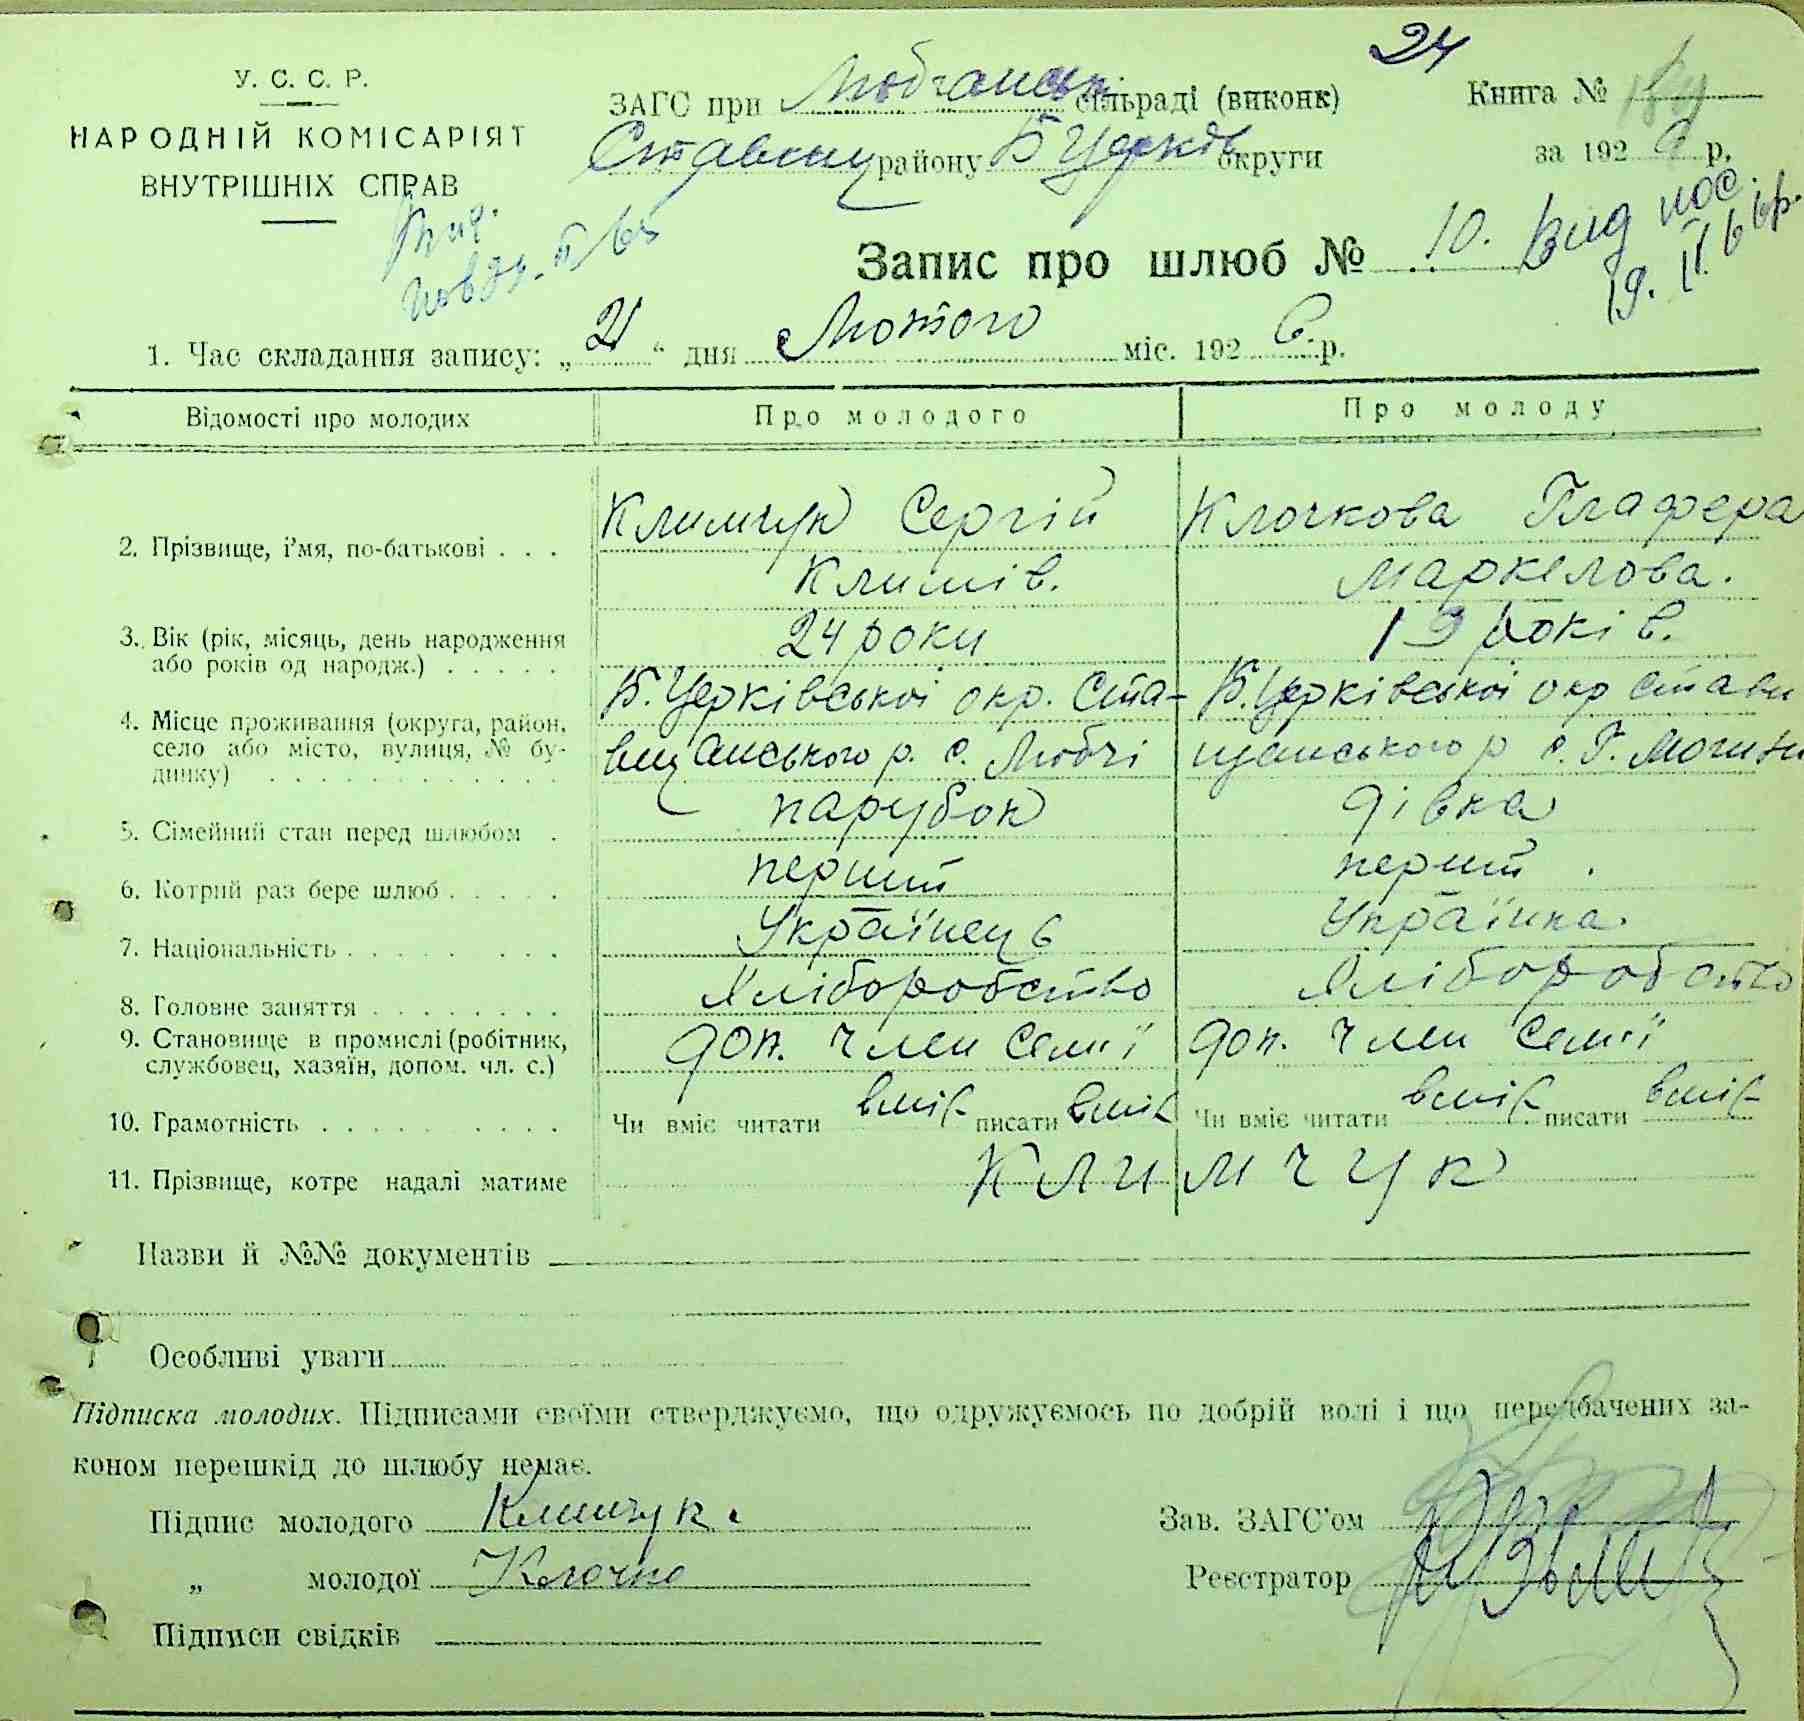 24
У. С. С. Р.
НАРОДНІЙ КОМІСАРІЯТ
ВНУТРІШНІХ СПРАВ
ЗАГС при Любчанськ. сільраді (виконк)
Ставищ району Б Церків округи
Книга №
за 192 6 р.
Запис про шлюб № 10.
Вид пос.
19. II. 6 р.
1. Час складання запису: „ 21 “ дня Лютого міс. 192 6. р.
Відомості про молодих Про молодого Про молоду
2. Прізвище, і'мя, по-батькові . . . Климчук Сергій Клочкова Глафера
Климів. Маркелова.
3. Вік (рік, місяць, день народження або років од народж.) . . . . . 24 роки 19 років.
4. Місце проживання (округа, район, село або місто, вулиця, № будинку) Б. Церківської окр. Ста- Б. Церківської окр Стави
вищанського р. с. Любчі щанського р с. Г.
5. Сімейний стан перед шлюбом . парубок дівка
6. Котрий раз бере шлюб . . . . . перший перший .
7. Національність . . . . . . . . Українець Українка.
8. Головне заняття . . . . . . . . Хліборобство Хліборобство
9. Становище в промислі (робітник, службовец, хазяїн, допом. чл. с.) доп. член семї доп. член семї
10. Грамотність . . . . . . . . . . Чи вміє читати вміє писати вміє Чи вміє читати вміє писати вміє
11. Прізвище, котре надалі матиме КЛИМЧУК
Назви й №№ документів
Особливі уваги
Підписка молодих. Підписами своїми стверджуємо, що одружуємось по добрій волі і що передбачених за-
коном перешкід до шлюбу немає.
Підпис молодого Климчук. Зав. ЗАГС'ом
„ молодої Клочко Реєстратор
Підписи свідків